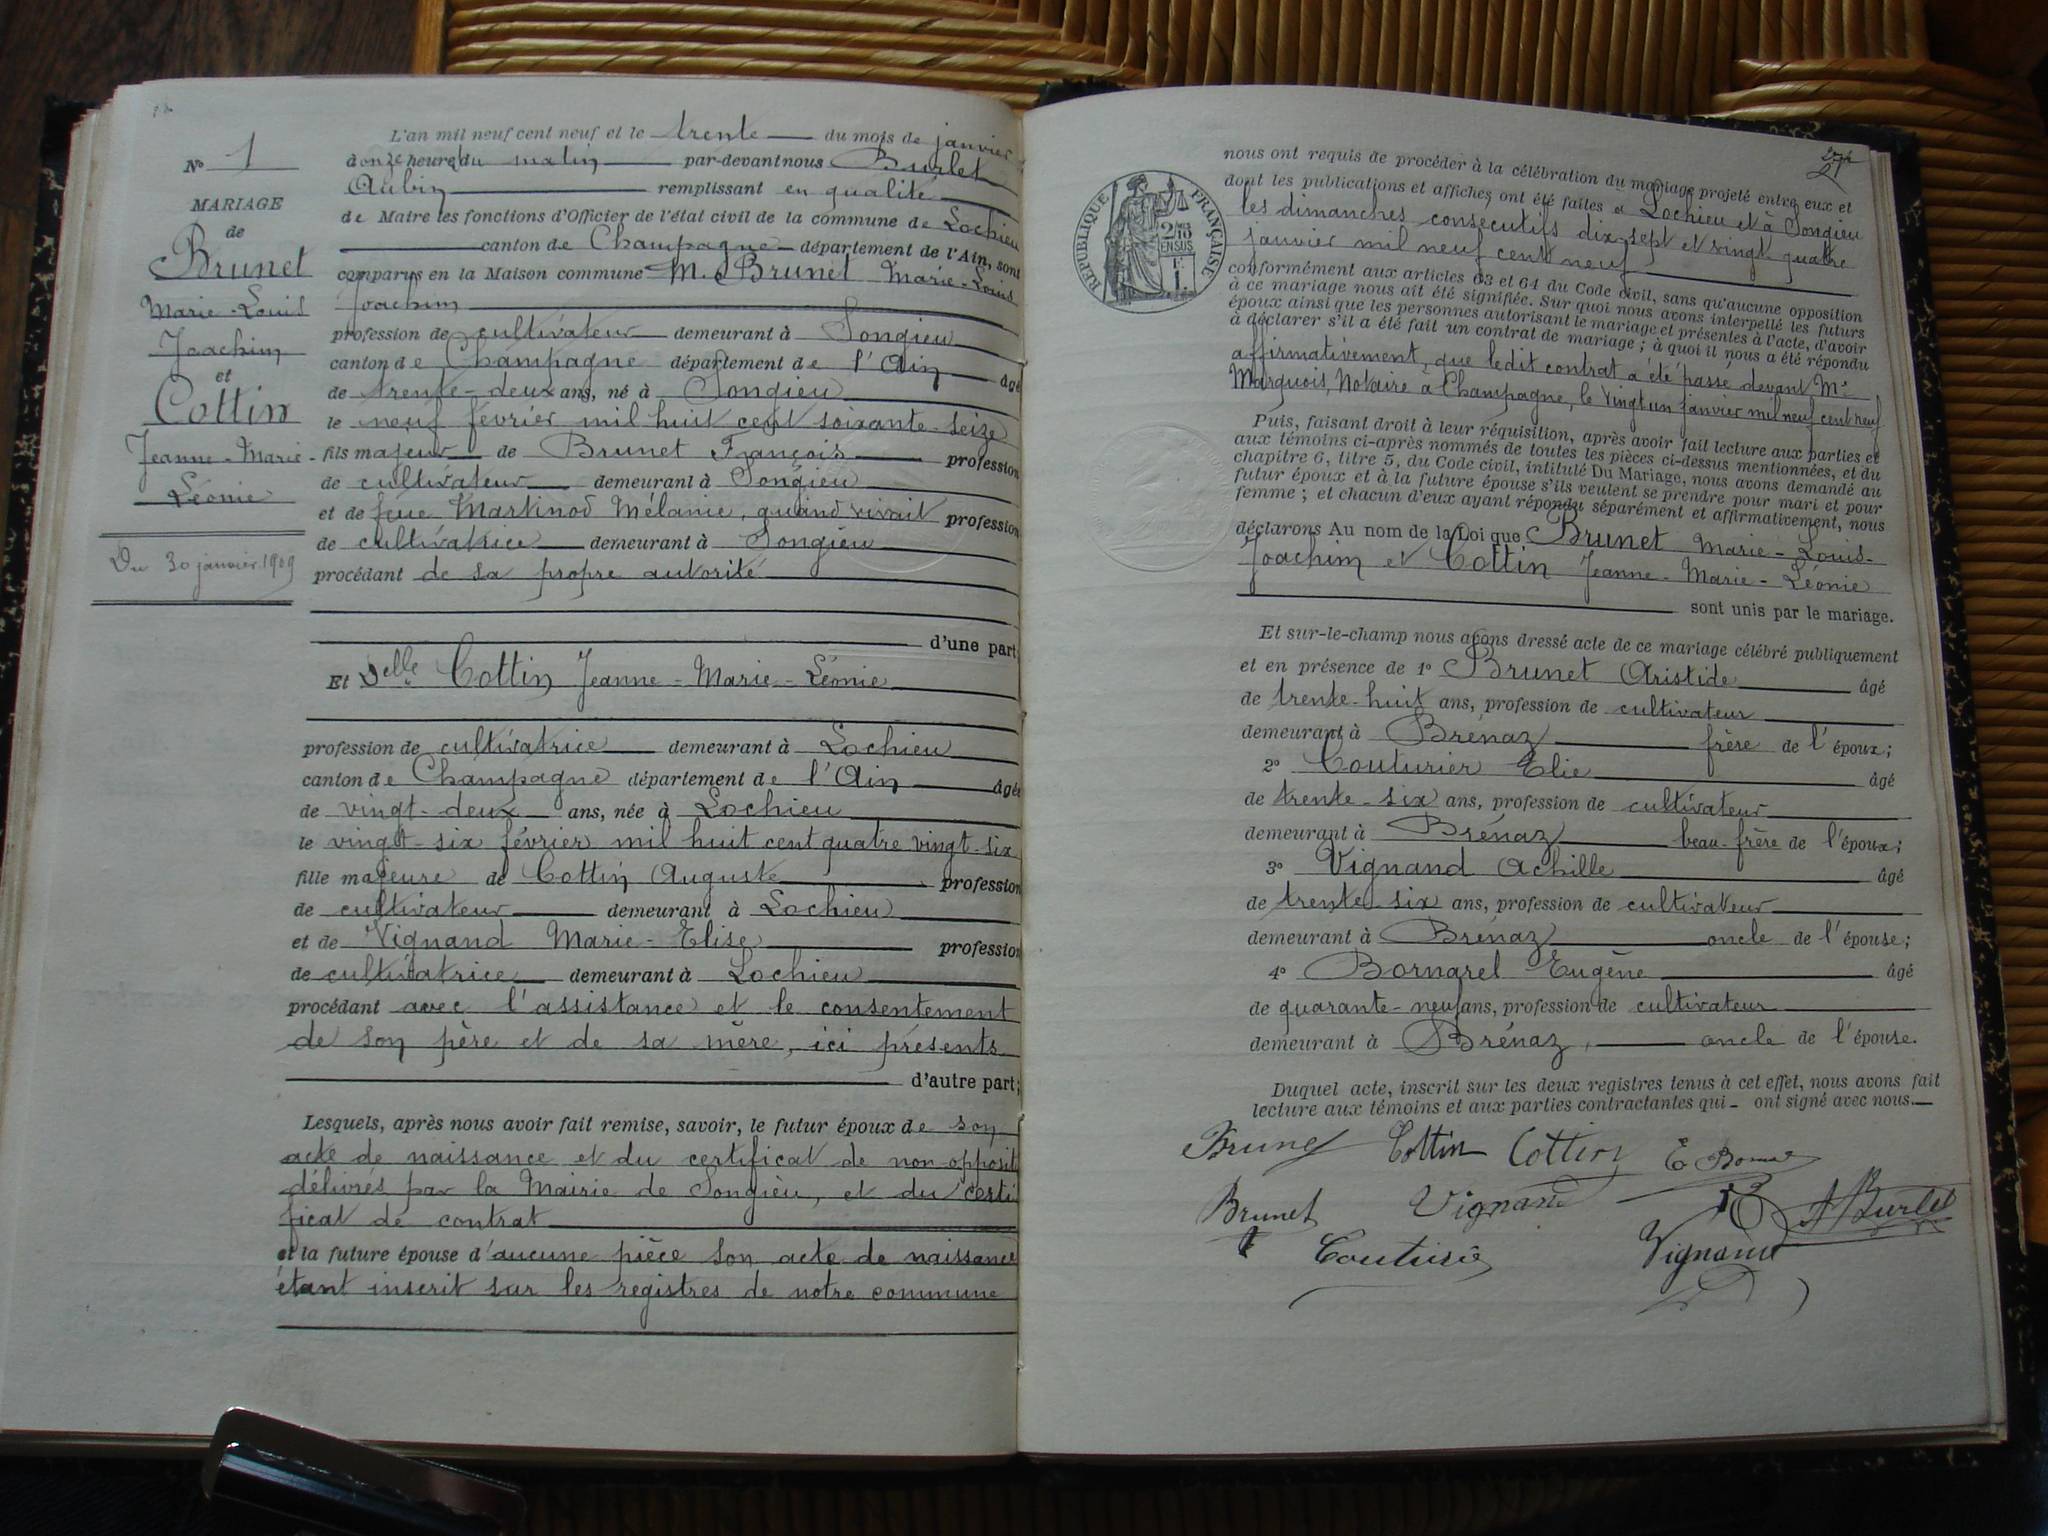 N° 1
MARIAGE
de
Brunet
Marie-Louis
Joachim
et
Cottin
Jeanne-Marie-
Léonie
Du 30 janvier 1909
L'an mil neuf cent neuf et le trente du mois de janvier
à onze heures du matin par-devant nous Burlet
Aubin remplissant en qualité
de Maire les fonctions d'Officier de l'état civil de la commune de Lochieu
canton de Champagne département de l'Ain, sont
comparus en la Maison commune M. Brunet Marie-Louis
Joachim
profession de cultivateur demeurant à Songieu
canton de Champagne département de l'Ain âgé
de trente-deux ans, né à Songieu
le neuf février mil huit cent soixante-seize
fils majeur de Brunet François profession
de cultivateur demeurant à Songieu
et de feue Martinod Mélanie, quand vivait profession
de cultivatrice demeurant à Songieu
procédant de sa propre autorité
d'une part;
Et Delle Cottin Jeanne-Marie-Léonie
profession de cultivatrice demeurant à Lochieu
canton de Champagne département de l'Ain âgée
de vingt-deux ans, née à Lochieu
le vingt-six février mil huit cent quatre vingt-six
fille majeure de Cottin Auguste profession
de cultivateur demeurant à Lochieu
et de Vignand Marie-Elise profession
de cultivatrice demeurant à Lochieu
procédant avec l'assistance et le consentement
de son père et de sa mère, ici présents
d'autre part;
Lesquels, après nous avoir fait remise, savoir, le futur époux de son
acte de naissance et du certificat de non opposit
délivrés par la Mairie de Songieu, et du certi
ficat de contrat
et la future épouse d'aucune pièce son acte de naissance
étant inscrit sur les registres de notre commune
21
RÉPUBLIQUE FRANÇAISE
2/10
EN SUS
1 F.
nous ont requis de procéder à la célébration du mariage projeté entre eux et
dont les publications et affiches ont été faites à Lochieu et à Songieu
les dimanches consécutifs dix sept et vingt-quatre
janvier mil neuf cent neuf
conformément aux articles 63 et 64 du Code civil, sans qu'aucune opposition
à ce mariage nous ait été signifiée. Sur quoi nous avons interpellé les futurs
époux ainsi que les personnes autorisant le mariage et présentes à l'acte, d'avoir
à déclarer s'il a été fait un contrat de mariage; à quoi il nous a été répondu
affirmativement, que ledit contrat a été passé devant Me
Marquois, Notaire à Champagne, le vingt un janvier mil neuf cent neuf
Puis, faisant droit à leur réquisition, après avoir fait lecture aux parties et
aux témoins ci-après nommés de toutes les pièces ci-dessus mentionnées, et du
chapitre 6, titre 5, du Code civil, intitulé Du Mariage, nous avons demandé au
futur époux et à la future épouse s'ils veulent se prendre pour mari et pour
femme; et chacun d'eux ayant répondu séparément et affirmativement, nous
déclarons Au nom de la Loi que Brunet Marie-Louis-
Joachim et Cottin Jeanne-Marie-Léonie
sont unis par le mariage.
Et sur-le-champ nous avons dressé acte de ce mariage célébré publiquement
et en présence de 1° Brunet Aristide âgé
de trente-huit ans, profession de cultivateur
demeurant à Brénaz frère de l'époux;
2° Couturier Elie âgé
de trente-six ans, profession de cultivateur
demeurant à Brénaz beau-frère de l'époux;
3° Vignand Achille âgé
de trente-six ans, profession de cultivateur
demeurant à Brénaz oncle de l'épouse;
4° Bornarel Eugène âgé
de quarante-neuf ans, profession de cultivateur
demeurant à Brénaz, oncle de l'épouse.
Duquel acte, inscrit sur les deux registres tenus à cet effet, nous avons fait
lecture aux témoins et aux parties contractantes qui ont signé avec nous.
Brunet Cottin Cottin
Brunet Vignand A Burlet
Couturier Vignand